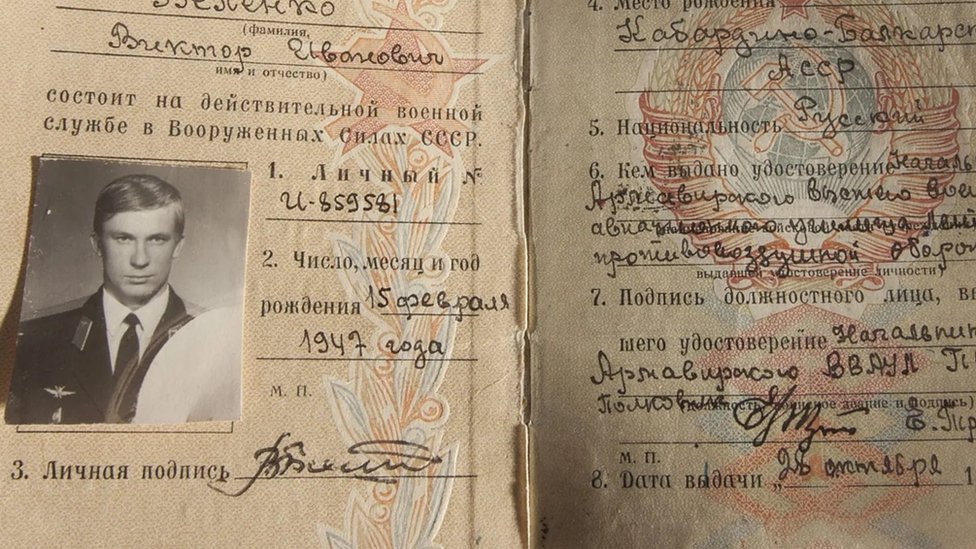 Беленко
(фамилия,
Виктор Иванович
имя и отчество)
состоит на действительной военной
службе в Вооруженных Силах СССР.
1. Личный №
И-859581
2. Число, месяц и год
рождения 15 февраля
1947 года
М. П.
3. Личная подпись
4. Место рождения
Кабардино-Балкарс
АССР
5. Национальность Русский
6. Кем выдано удостоверение Началь
Армавирского высшего вое
авиационного училища
противовоздушной оборон
выдавшей удостоверение личности)
7. Подпись должностного лица, вы
шего удостоверение Начальник
Армавирского ВВАУЛ П
Полковник
М. П.
8. Дата выдачи „28 октября 1